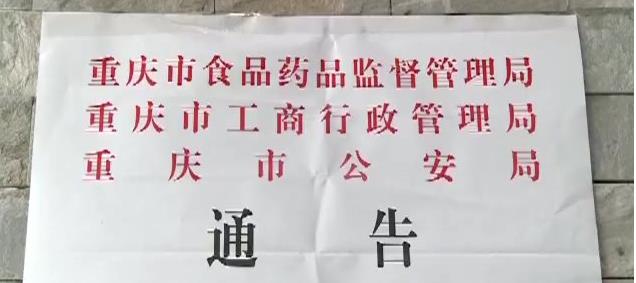 重庆市食品药品监督管理局
重庆市工商行政管理局
重庆市公安局
通告